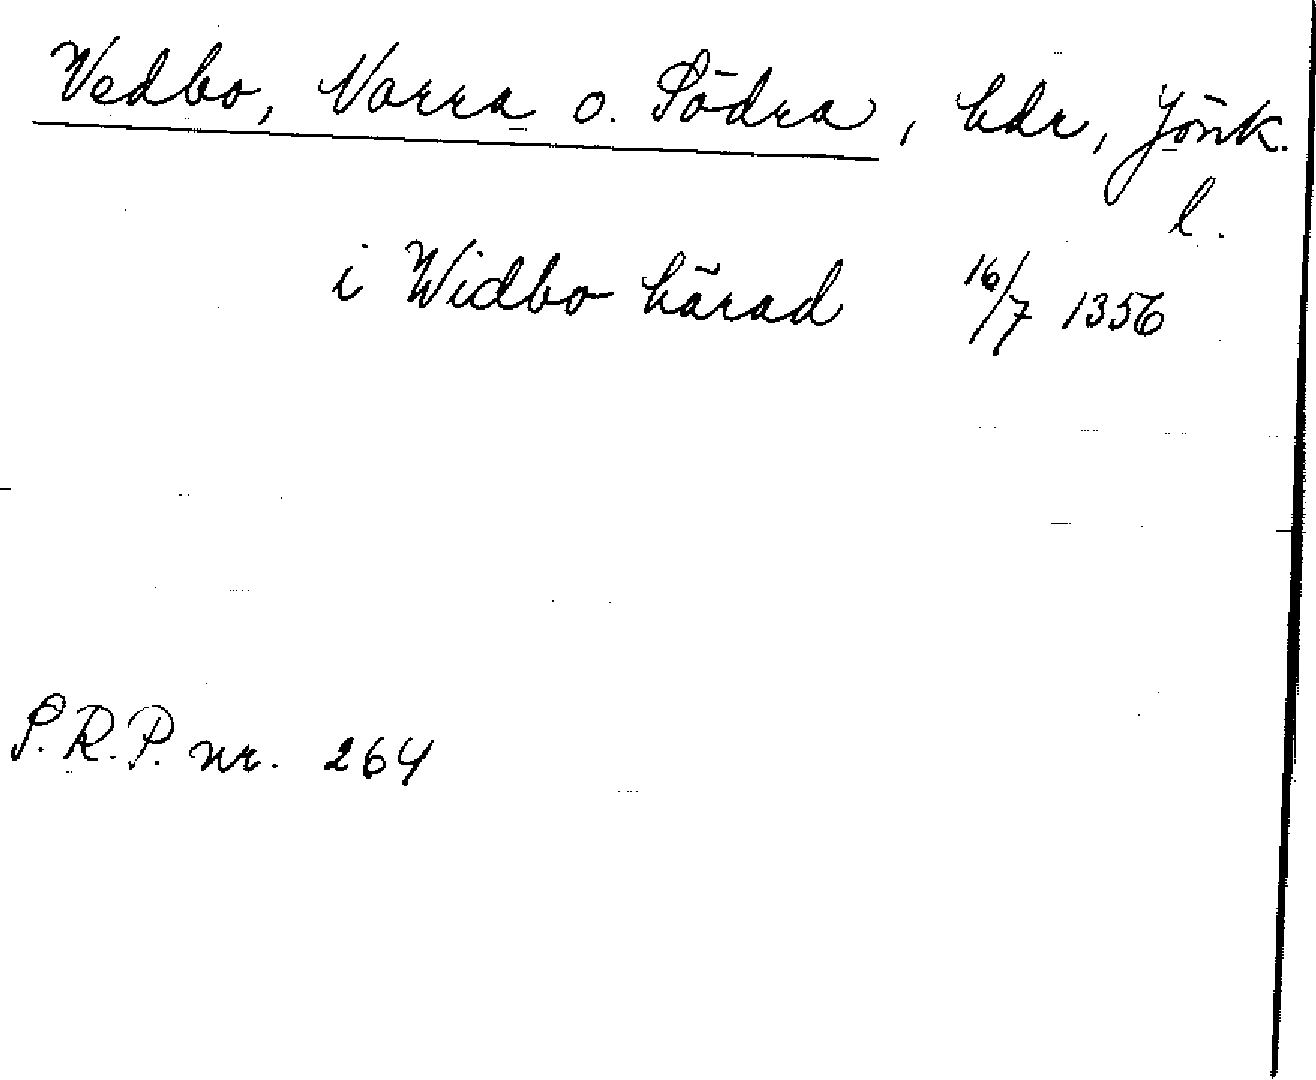 Vedbo, Norra o. Södra, hdr, Jönk.
l.
i Widbo härad 16/7 1356
S.R.P. nr. 264